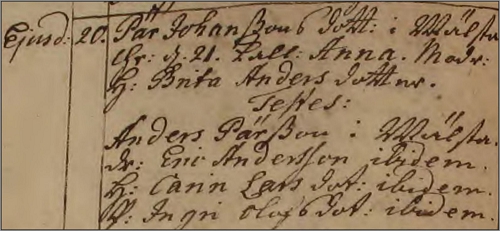 Ejusd: 20. Pär Johanßons dott: i Mälsta
Chr: d: 21. Kall: Anna. Modr:
H: Brita Anders dotter.
Testes:
Anders Pärßon i Mälsta.
dr: Eric Andersson ibidem.
H: Carin Lars dot: ibidem.
P: Ingri Olofs dot: ibidem.